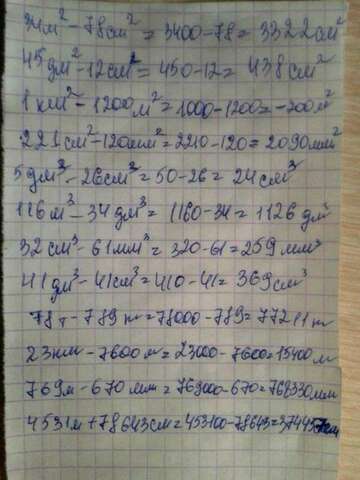 34м² - 78см² = 3400-78 = 3322см²
45дм² - 12см² = 450-12 = 438см²
1км² - 1200м² = 1000-1200 = -200м²
221см² - 120мм² = 2210-120 = 2090мм²
5дм³ - 26см³ = 50-26 = 24см³
116м³ - 34дм³ = 1160-34 = 1126дм³
32см³ - 61мм³ = 320-61 = 259мм³
41дм³ - 41см³ = 410-41 = 369см³
78т - 789кг = 78000-789 = 77211кг
23км - 7600м = 23000-7600 = 15400м
769м - 670мм = 769000-670 = 768330мм
4531м + 78643см = 453100-78643 = 374457см